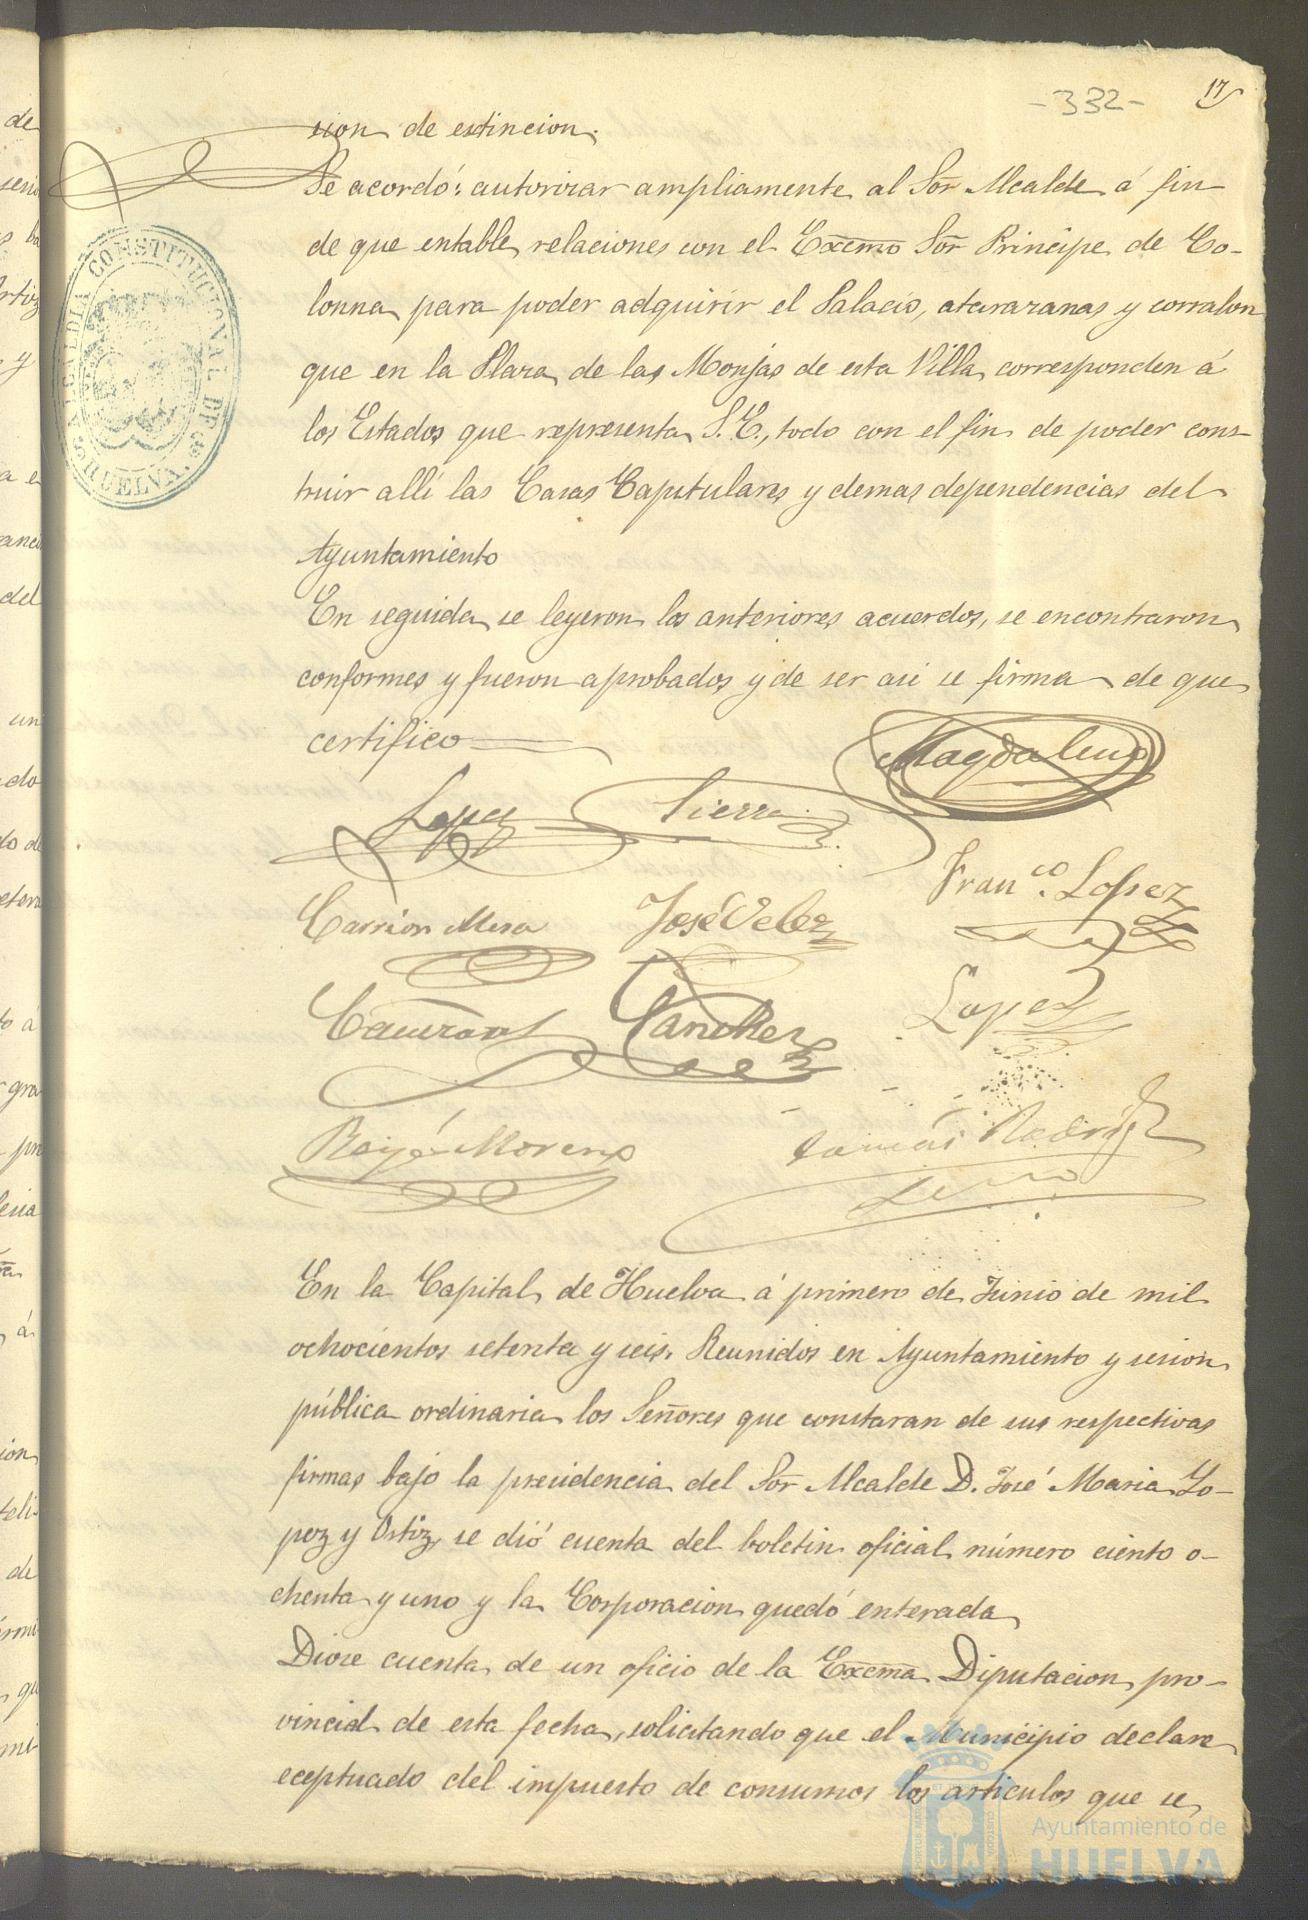 -332-
17
sion de estincion.
Se acordó: autorizar ampliamente al Sor Alcalde á fin
de que entable relaciones con el Excmo Sor Principe de Co-
lonna para poder adquirir el Palacio, atarazanas y corralon
que en la Plaza de las Monjas de esta Villa corresponden á
los Estados que representa S. E., todo con el fin de poder cons-
truir allí las Casas Capitulares y demas dependencias del
Ayuntamiento
En seguida se leyeron los anteriores acuerdos, se encontraron
conformes y fueron aprobados y de ser asi se firma de que
certifico
Magdaleno
Lopez Sierra
Franco. Lopez
Carrion Mesa José Velez
Lopez
Sanchez
Moreno
Tomás Rodrigz
En la Capital de Huelva á primero de Junio de mil
ochocientos setenta y seis. Reunidos en Ayuntamiento y sesion
pública ordinaria los Señores que constaran de sus respectivas
firmas bajo la presidencia del Sor Alcalde D. José Maria Lo-
pez y Ortiz, se dió cuenta del boletin oficial número ciento o-
chenta y uno y la Corporacion quedó enterada
Diose cuenta de un oficio de la Excma Diputacion pro-
vincial de esta fecha, solicitando que el Municipio declare
eceptuado del impuesto de consumos los articulos que se
ALCALDIA CONSTITUCIONAL DE HUELVA.
Ayuntamiento de
HUELVA